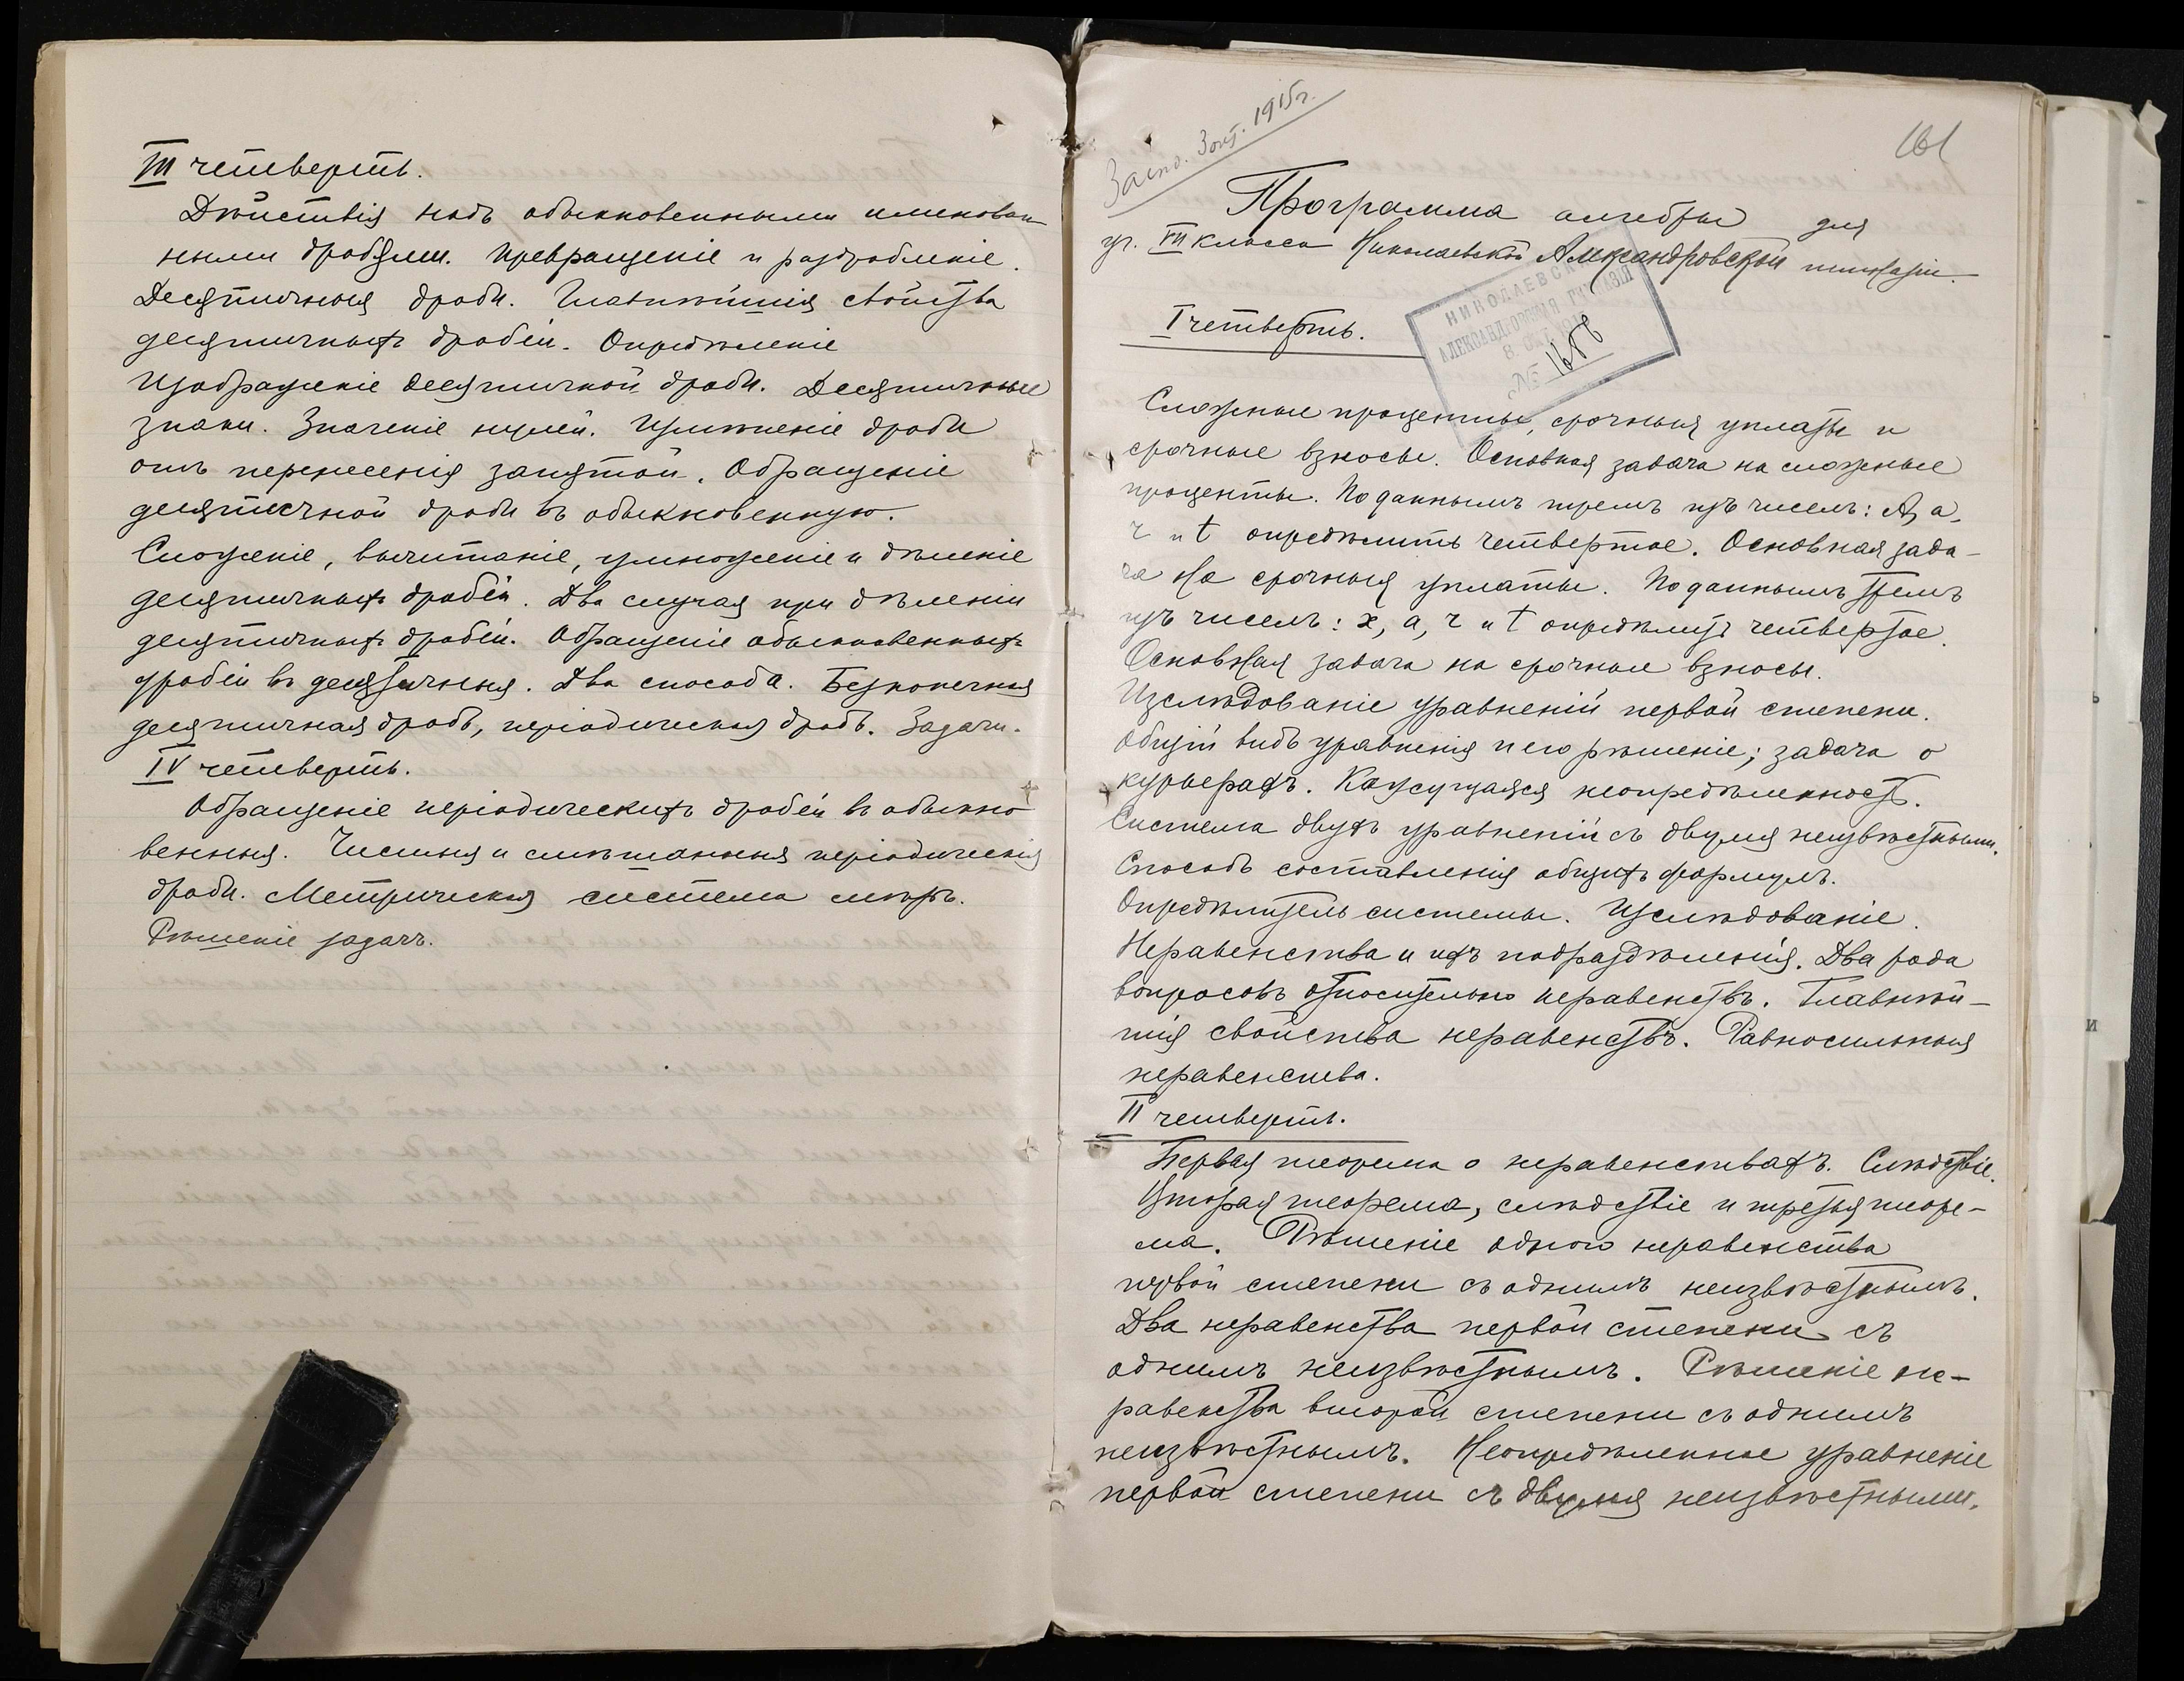 III четверть.
Дѣйствія надъ обыкновенными именован
ными дробями. Превращеніе и раздробленіе.
Десятичныя дроби. Главнѣйшія свойства
десятичныхъ дробей. Опредѣленіе
Изображеніе десятичной дроби. Десятичные
знаки. Значеніе нулей. Измѣненіе дроби
отъ перенесенія запятой. Обращеніе
десятичной дроби въ обыкновенную.
Сложеніе, вычитаніе, умноженіе и дѣленіе
десятичныхъ дробей. Два случая при дѣленіи
десятичныхъ дробей. Обращеніе обыкновенныхъ
дробей въ десятичныя. Два способа. Безконечная
десятичная дробь, періодическая дробь. Задачи.
IV четверть.
Обращеніе періодическихъ дробей въ обыкно
венныя. Чистыя и смѣшанныя періодическія
дроби. Метрическая система мѣръ.
Рѣшеніе задачъ.
Засѣд. 3 окт. 1915 г.
161
Программа алгебры для
уч. VII класса Николаевской Александровской гимназіи.
НИКОЛАЕВСКАЯ
АЛЕКСАНДРОВСКАЯ ГИМНАЗІЯ
8. ОКТ.
№ 1658
I четверть.
Сложные проценты, срочныя уплаты и
срочные взносы. Основная задача на сложные
проценты. По даннымъ тремъ изъ чиселъ: А, а,
r и t опредѣлить четвертое. Основная зада-
ча на срочныя уплаты. По даннымъ тремъ
изъ чиселъ: x, a, r и t опредѣлить четвертое.
Основная задача на срочные взносы.
Изслѣдованіе уравненій первой степени.
Общій видъ уравненія и его рѣшеніе; задача о
курьерахъ. Кажущаяся неопредѣленность.
Система двухъ уравненій съ двумя неизвѣстными.
Способъ составленія общихъ формулъ.
Опредѣлитель системы. Изслѣдованіе.
Неравенства и ихъ подраздѣленія. Два рода
вопросовъ относительно неравенствъ. Главнѣй-
шія свойства неравенствъ. Равносильныя
неравенства.
II четверть.
Первая теорема о неравенствахъ. Слѣдствіе.
Вторая теорема, слѣдствіе и третья теоре-
ма. Рѣшеніе одного неравенства
первой степени съ однимъ неизвѣстнымъ.
Два неравенства первой степени съ
однимъ неизвѣстнымъ. Рѣшеніе не-
равенства второй степени съ однимъ
неизвѣстнымъ. Неопредѣленное уравненіе
первой степени съ двумя неизвѣстными.